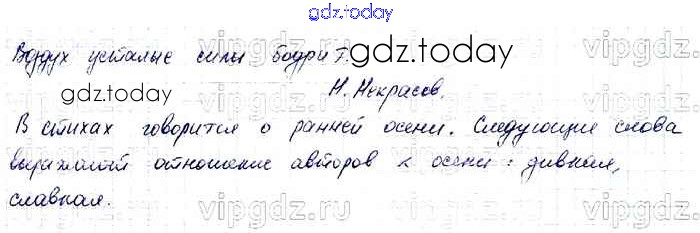 gdz.today
Воздух усталые силы бодрит. gdz.today
Н. Некрасов.
gdz.today
В стихах говорится о ранней осени. Следующие слова
выражают отношение авторов к осени: дивная,
славная.
vipgdz.ru vipgdz.ru vipgdz.ru
vipgdz.ru vipgdz.ru vipgdz.ru